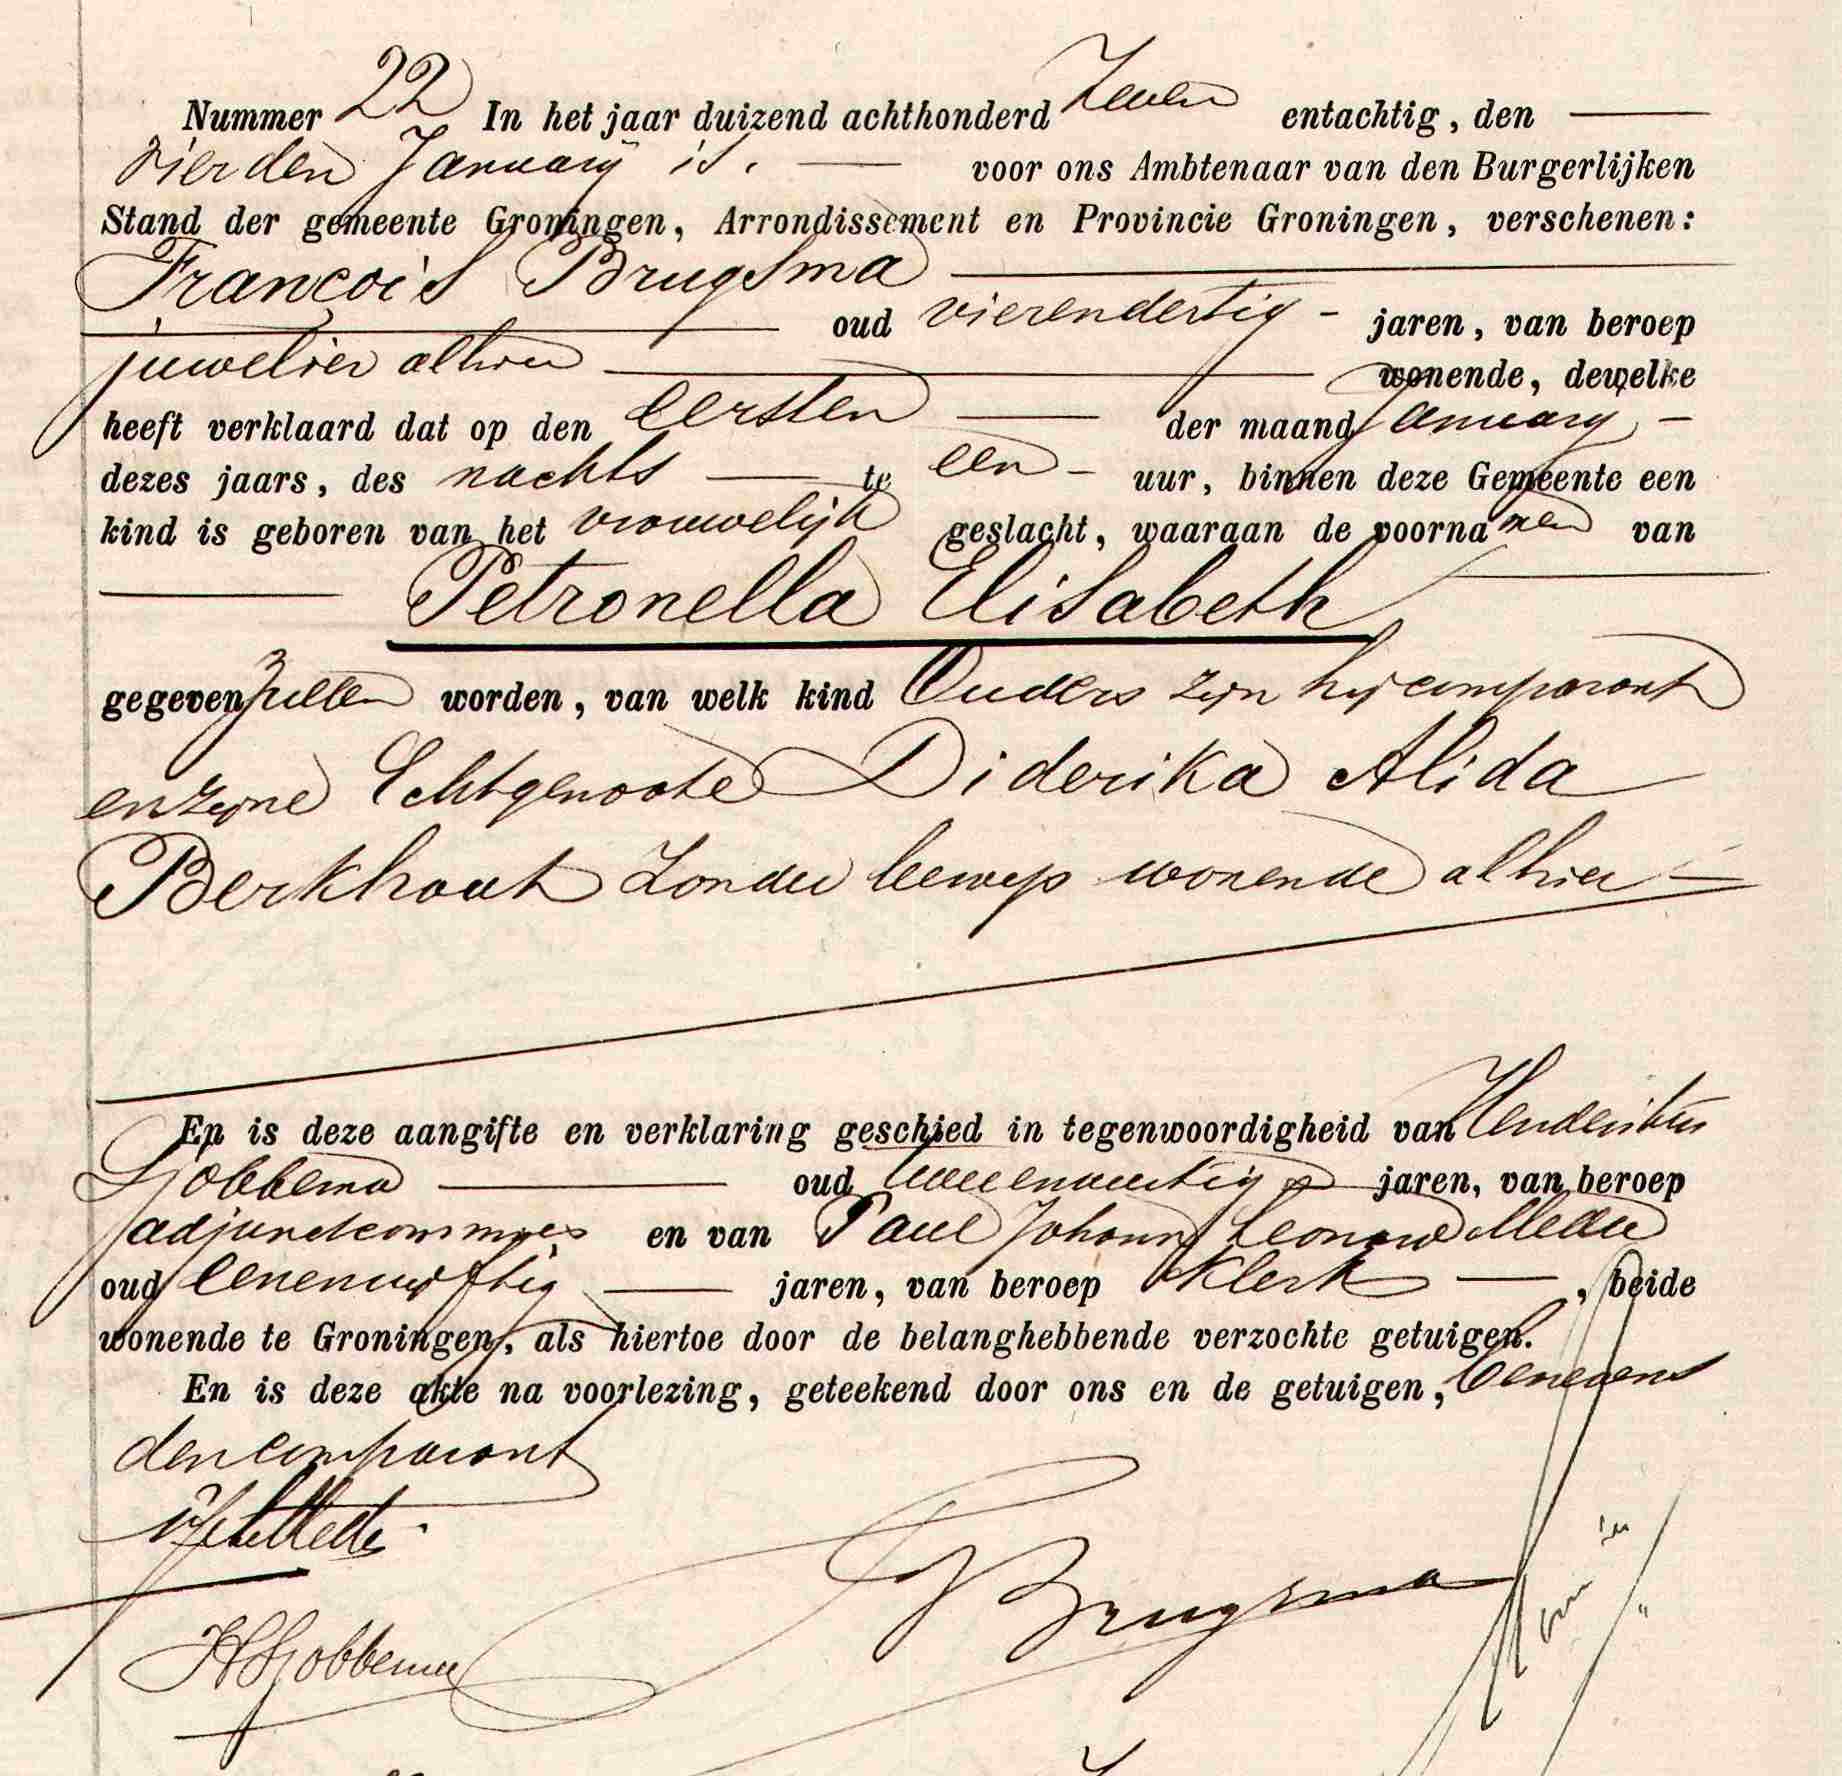 Nummer 22 In het jaar duizend achthonderd Zeven entachtig, den
vierden January is. voor ons Ambtenaar van den Burgerlijken
Stand der gemeente Groningen, Arrondissement en Provincie Groningen, verschenen:
François Brugsma
oud vierendertig jaren, van beroep
juwelier alhier wonende, dewelke
heeft verklaard dat op den eersten der maand January
dezes jaars, des nachts te een uur, binnen deze Gemeente een
kind is geboren van het vrouwelijk geslacht, waaraan de voornamen van
Petronella Elisabeth
gegeven zullen worden, van welk kind Ouders zijn hij comparant
en zijne Echtgenoote Diderika Alida
Berkhout zonder beroep wonende alhier
En is deze aangifte en verklaring geschied in tegenwoordigheid van Hendrikus
Sjobbema oud jaren, van beroep
adjunctcommies en van Paul Johann Leonard
oud eenenvijftig jaren, van beroep Klerk, beide
wonende te Groningen, als hiertoe door de belanghebbende verzochte getuigen.
En is deze akte na voorlezing, geteekend door ons en de getuigen, benevens
den comparant
F Brugsma
H Sjobbema